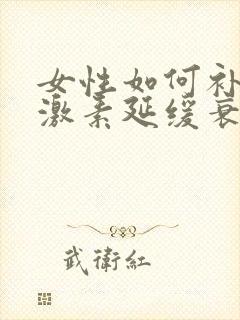 女性如何补
激素延缓衰
武衛紅